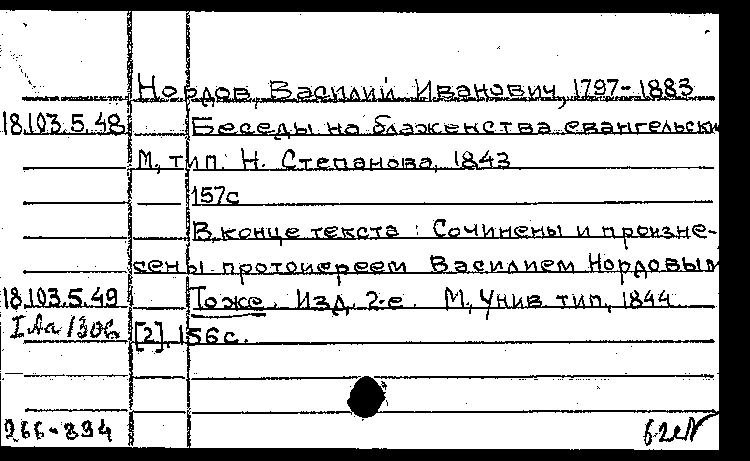 Нордов, Василий Иванович, 1797-1883
18.103.5.48 Беседы на блаженства евангельски
М, тип. Н. Степанова, 1843
157с
В конце текста : Сочинены и произне-
сены протоиереем Василием Нордовым
18.103.5.49 Тоже. Изд. 2-е. М, Унив тип, 1844
[2], 156с.
266-894